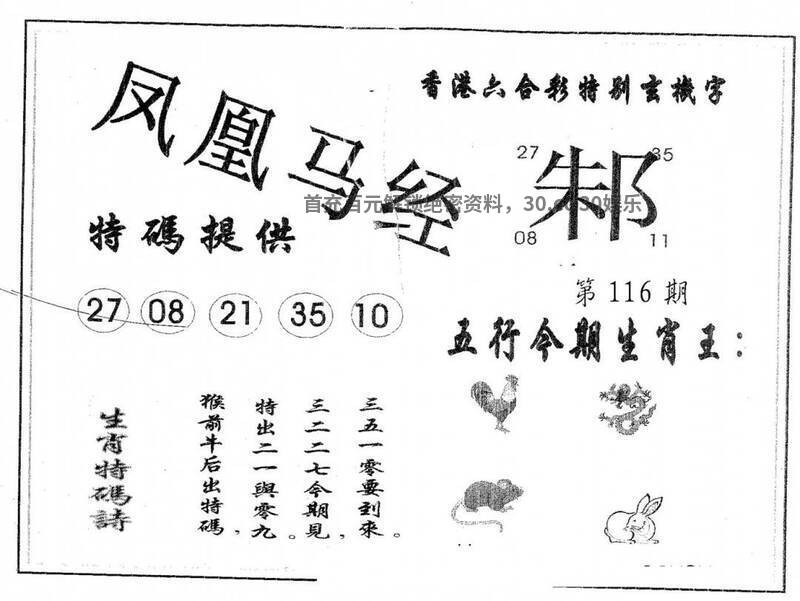 凤凰马经
香港六合彩特别玄機字
27 35
邾
08 11
首充百元解锁绝密资料，30.cc30娱乐
特碼提供
27 08 21 35 10
第116期
五行今期生肖王：
生肖特碼詩
猴前牛后出特碼，
特出二一與零九。
三二二七今期見，
三五一零要到來。